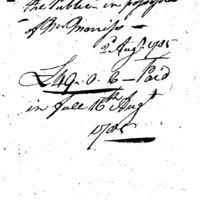 the Publick in possession
of Mr Morriss
2d Augt. 1785
L49.. 0. 6 — Paid
in full 16th Augt
1785